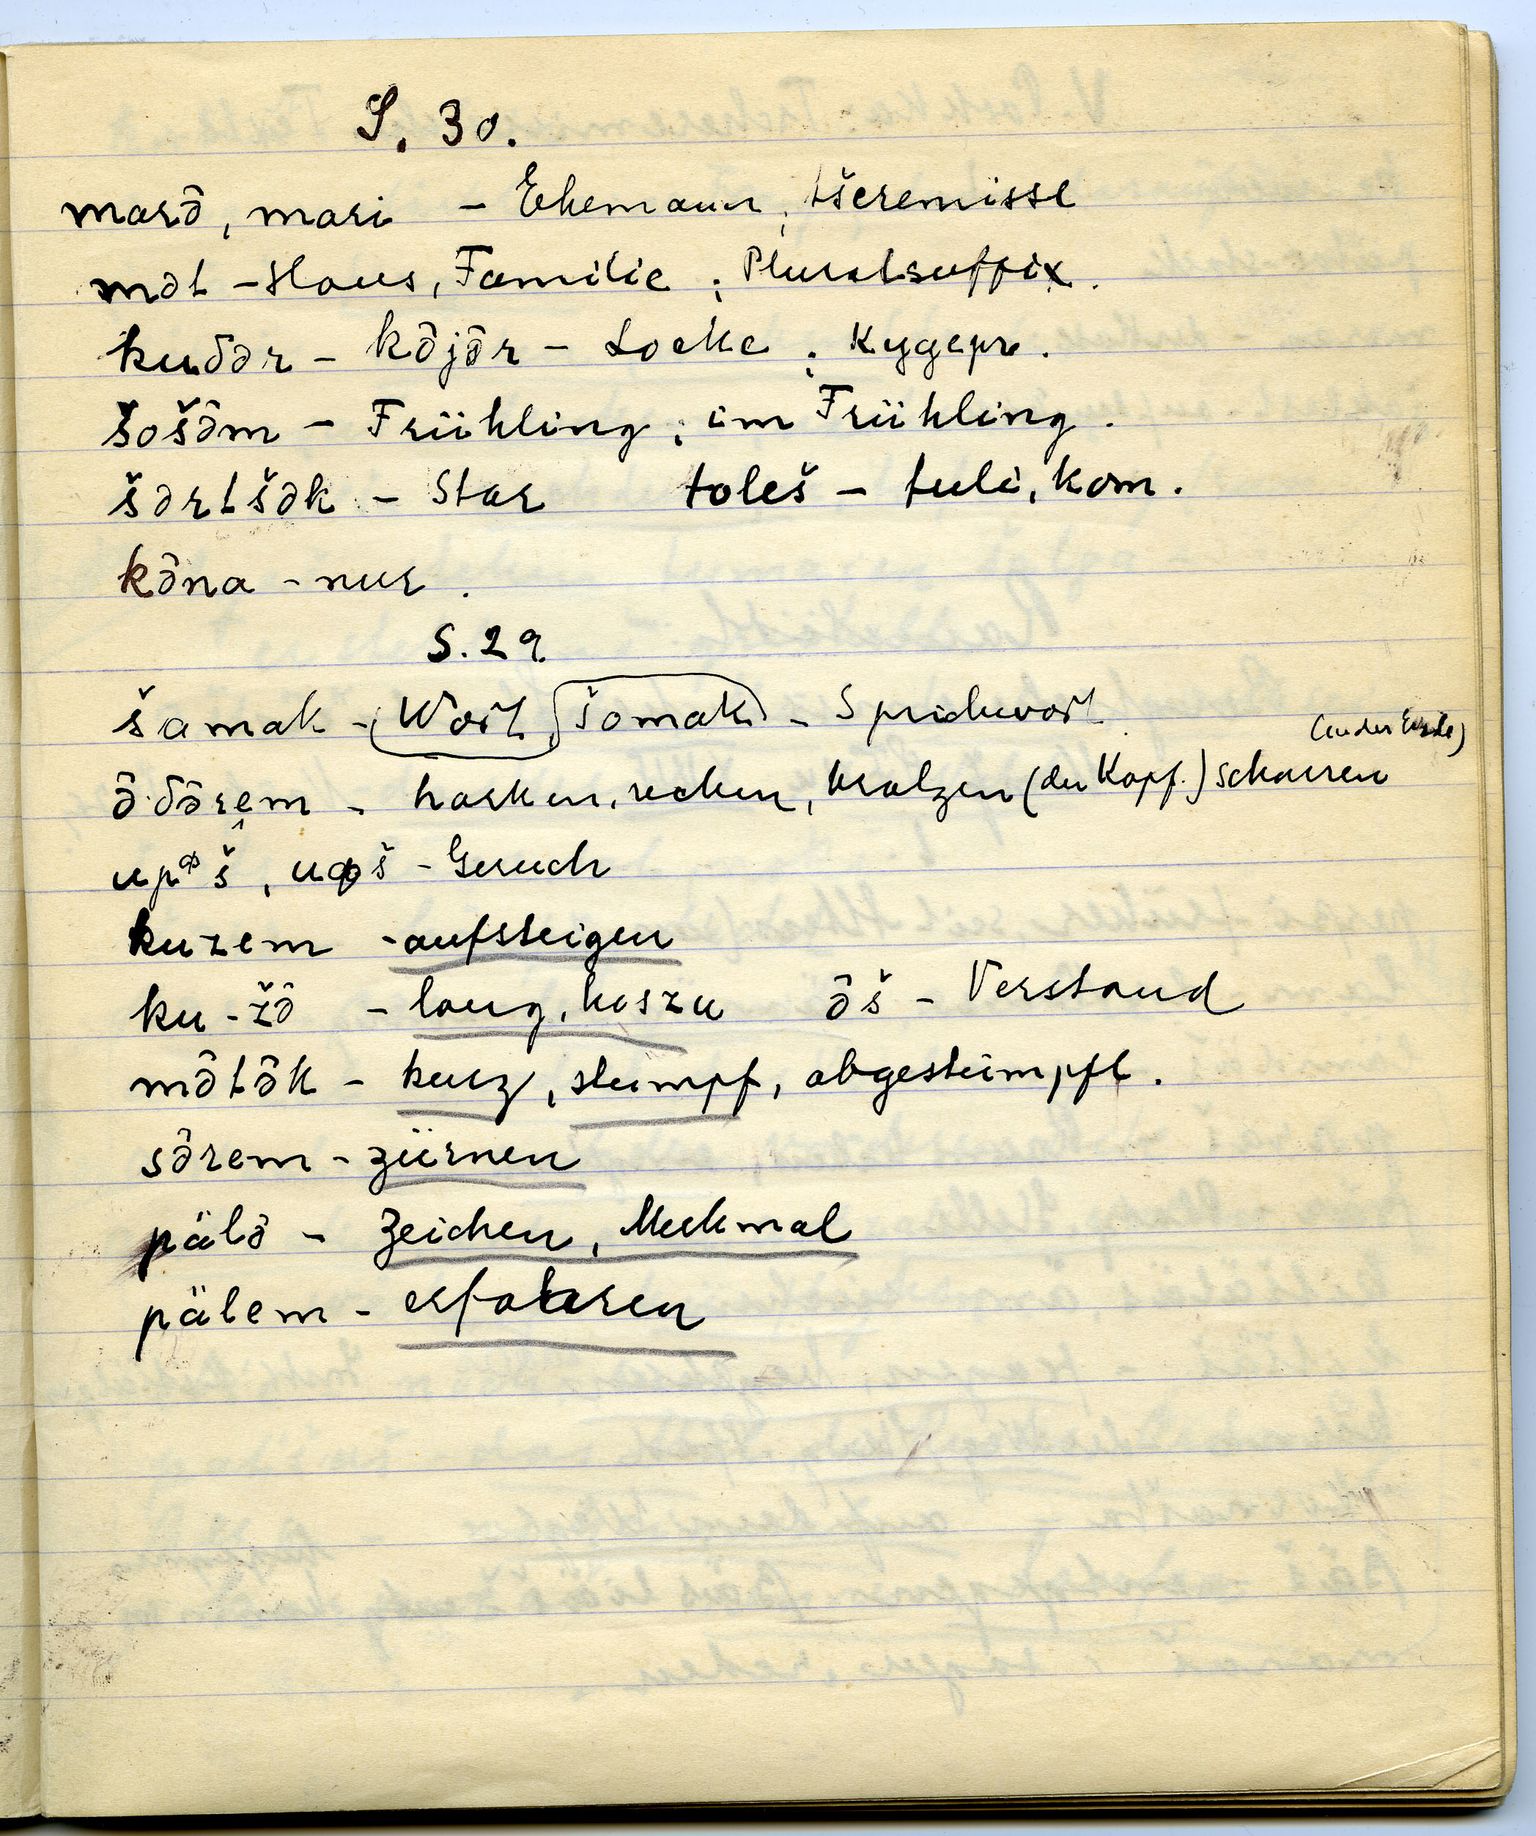 S. 30.
marə̂, mari – Ehemann, tšeremisse
mə̂t – Haus, Familie; Pluralsuffix.
kuδə̂r – kə̂jə̂r – Locke; кудере.
šošə̂m – Frühling; im Frühling.
šə̂rtšə̂k – Star toleš – tuli, kam.
kə̂na – nur.
S. 29.
šamak – Wort, šomak – Sprichwort
(in der Erde)
ə̂δə̂rem – harken, rechen, kratzen (den Kopf.) scharren
upφš, uφš – Geruch
kuzem – aufsteigen
ku-žə̂ – lang, hoszu ə̂š – Verstand
mə̂tə̂k – kurz, stumpf, abgestumpft.
sə̂rem – zürnen
pälə̂ – Zeichen, Merkmal
pälem – erfahren